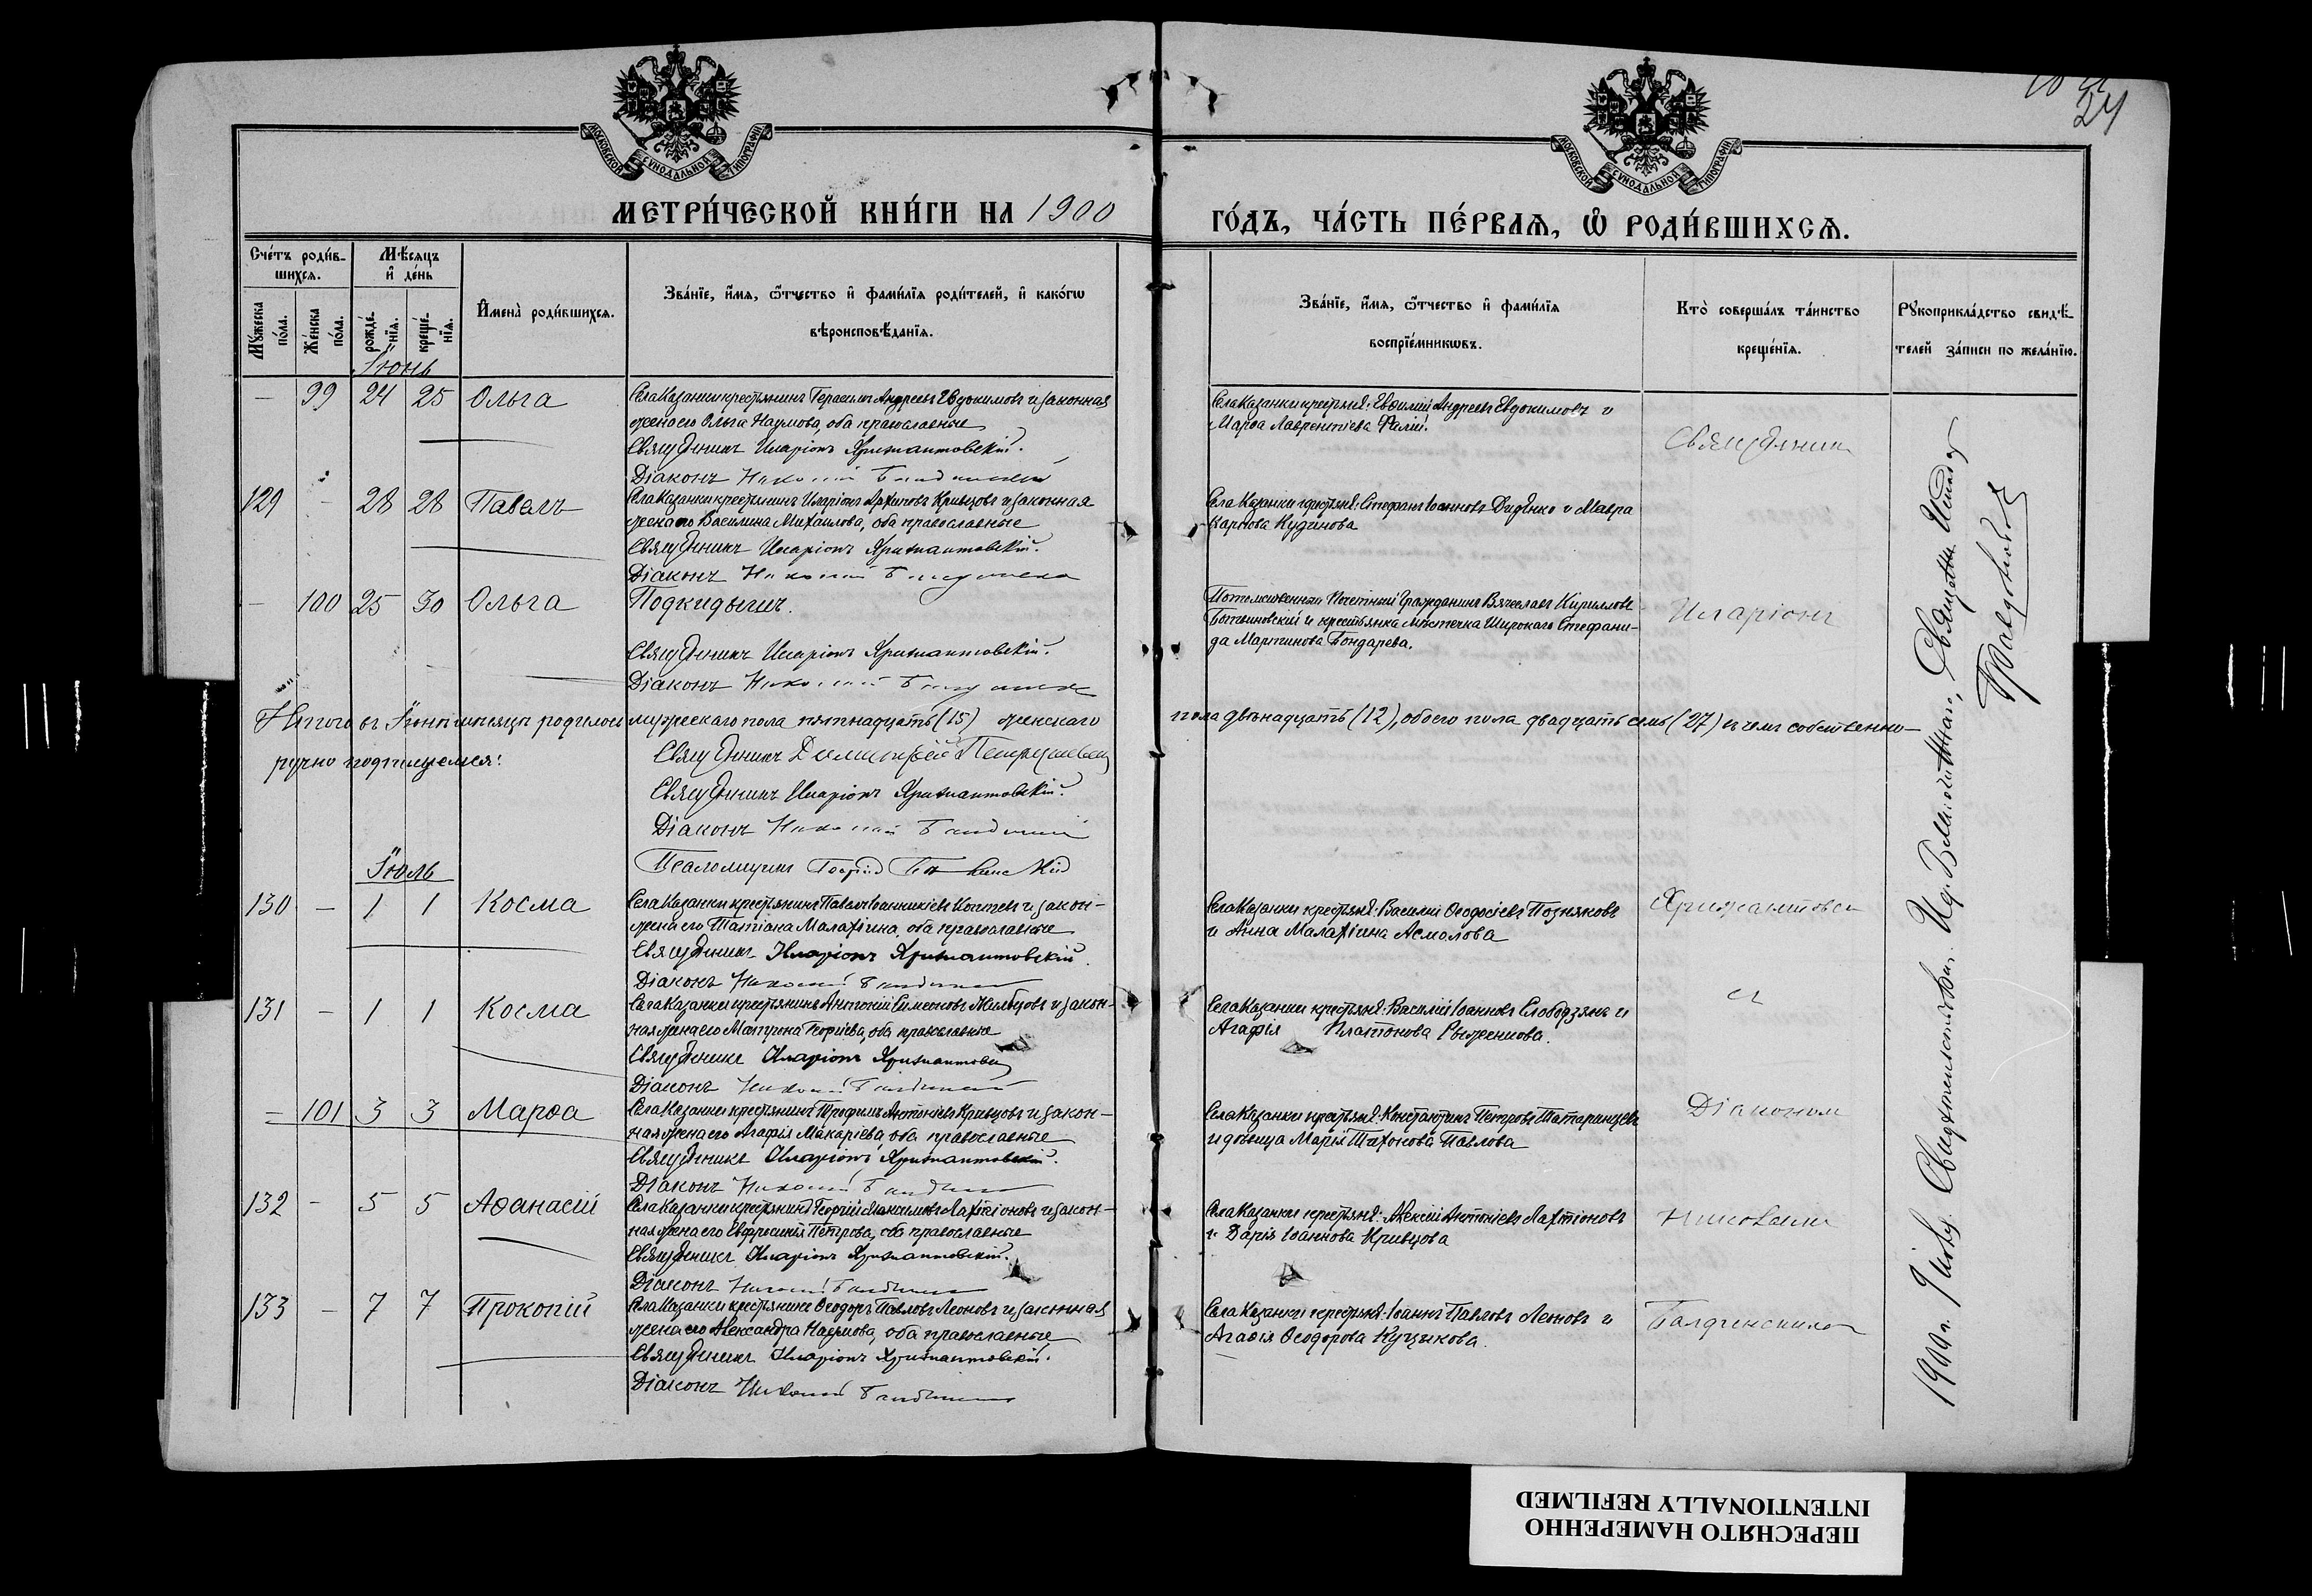 24
МОСКОВСКОЙ СѴНОДАЛЬНОЙ ТИПОГРАФІИ
МОСКОВСКОЙ СѴНОДАЛЬНОЙ ТИПОГРАФІИ
МЕТРИ́ЧЕСКОЙ КНИ́ГИ НА 1900
ГО́ДЪ, ЧА́СТЬ ПЕ́РВАѦ, Ѽ РОДИ́ВШИХСѦ.
Сче́тъ роди́в-
шихсѧ.
Мѣ́сяцъ
и҆ де́нь
Мꙋ́жеска
по́ла.
Же́нска
по́ла.
рожде́-
нїѧ.
креще́-
нїѧ.
И҆мена̀ роди́вшихсѧ.
Зва́нїе, и҆́мѧ, ѻ҆́тчество и҆ фами́лїѧ роди́телей, и҆ како́гѡ
вѣроисповѣ́данїѧ.
Зва́нїе, и҆́мѧ, ѻ҆́тчество и҆ фами́лїѧ
воспрїе́мникѡвъ.
Кто̀ соверша́лъ та́инство
креще́нїѧ.
Рꙋкоприкла́дство свидѣ́-
телей за́писи по жела́нїю.
Іюнь
— 99 24 25 Ольга
Села Казанки крестьянинъ Герасимъ Андреевъ Евдокимовъ и законная
жена его Ольга Наумова, оба православные
Священникъ Иларіонъ Хрисантовскій.
Діаконъ Николай
Села Казанки крестьяне: Евфимій Андреевъ Евдокимовъ и
Марѳа Лаврентіева
Священник
129 — 28 28 Павелъ
Села Казанки крестьянинъ Иларіонъ Архиповъ Кривцовъ и законная
жена его Василина Михаилова, оба православные
Священникъ Иларіонъ Хрисантовскій.
Діаконъ Николай
Села Казанки крестьяне: Стефанъ Іоанновъ Диденко и Мавра
Карпова Кудинова
— 100 25 30 Ольга
Подкидышъ.
Священникъ Иларіонъ Хрисантовскій.
Діаконъ Николай
Потомственный Почетный Гражданинъ Вячеславъ Кирилловъ
Ботвиновскій и крестьянка мѣстечка Широкаго Стефани-
да Мартинова Бондарева.
Иларіонъ
Итого въ Іюнѣ мѣсяцѣ родилось мужескаго пола пятнадцать (15) женскаго
пола двѣнадцать (12), обоего пола двадцать семь (27) въ чемъ собственно-
ручно подпишемся:
Священникъ Димитрій
Священникъ Иларіонъ Хрисантовскій.
Діаконъ Николай
Псаломщикъ Георгій
Іюль
130 — 1 1 Косма
Села Казанки крестьянинъ Павелъ Іоанникіевъ и закон-
жена его Татіана Малахіина, оба православные
Священникъ Иларіонъ Хрисантовскій.
Діаконъ Николай
Села Казанки крестьяне: Василій Ѳеодосіевъ Позняковъ
и Анна Малахіина Асмолова
131 — 1 1 Косма
Села Казанки крестьянинъ Антоній Симеоновъ и закон-
ная жена его Матрона Георгіева, оба православные
Священникъ Иларіонъ
Діаконъ Николай
Села Казанки крестьяне: Василій Іоанновъ Слободзянъ и
Агафія Платонова Рыженкова.
съ
— 101 3 3 Марѳа
Села Казанки крестьянинъ Трофимъ Антоніевъ Кривцовъ и закон-
ная жена его Агафія Макаріева, оба православные
Священникъ Иларіонъ Хрисантовскій.
Діаконъ Николай
Села Казанки крестьяне: Константинъ Петровъ Татаринцевъ
и дѣвица Марія Тихонова Павлова
Діакономъ
132 — 5 5 Аѳанасій
Села Казанки крестьянинъ Георгій Максимовъ Лахтіоновъ и закон-
ная жена его Евфросинія Петрова, оба православные
Священникъ Иларіонъ Хрисантовскій.
Діаконъ Николай
Села Казанки крестьяне: Алексій Антоніевъ Лахтіоновъ
и Дарія Іоаннова Кривцова
Николаемъ
133 — 7 7 Прокопій
Села Казанки крестьянинъ Ѳеодоръ Павловъ Леоновъ и законная
жена его Александра Наумова, оба православные
Священникъ Иларіонъ Хрисантовскій.
Діаконъ Николай
Села Казанки крестьяне: Іоаннъ Павловъ Леоновъ и
Агаѳія Ѳеодорова Куцыкова.
ПЕРЕСНЯТО НАМЕРЕННО
INTENTIONALLY REFILMED